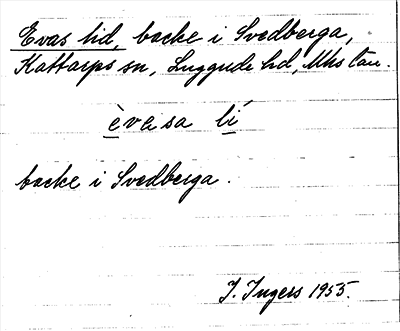 Evas lid, backe i Svedberga,
Kattarps sn, Luggude hd, Mhs län.
èvasa lí
backe i Svedberga.
I. Ingers 1955.